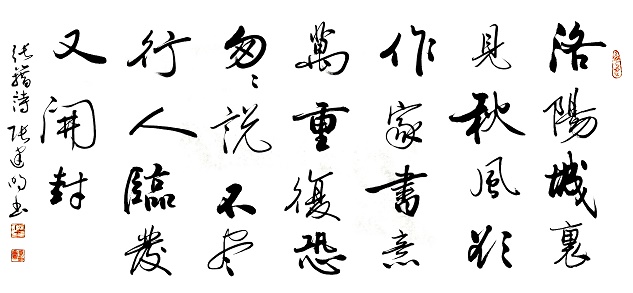 洛陽城裏
見秋風欲
作家書意
萬重復恐
匆〻說不尽
行人臨發
又開封
張籍詩 書